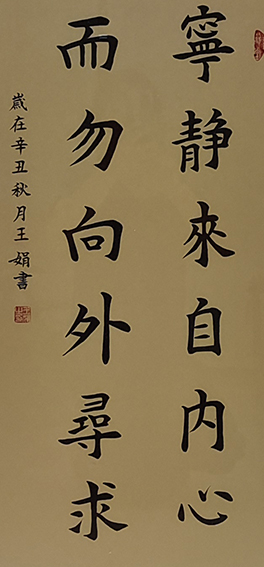 寧静來自内心
而勿向外尋求
歲在辛丑秋月王娟書